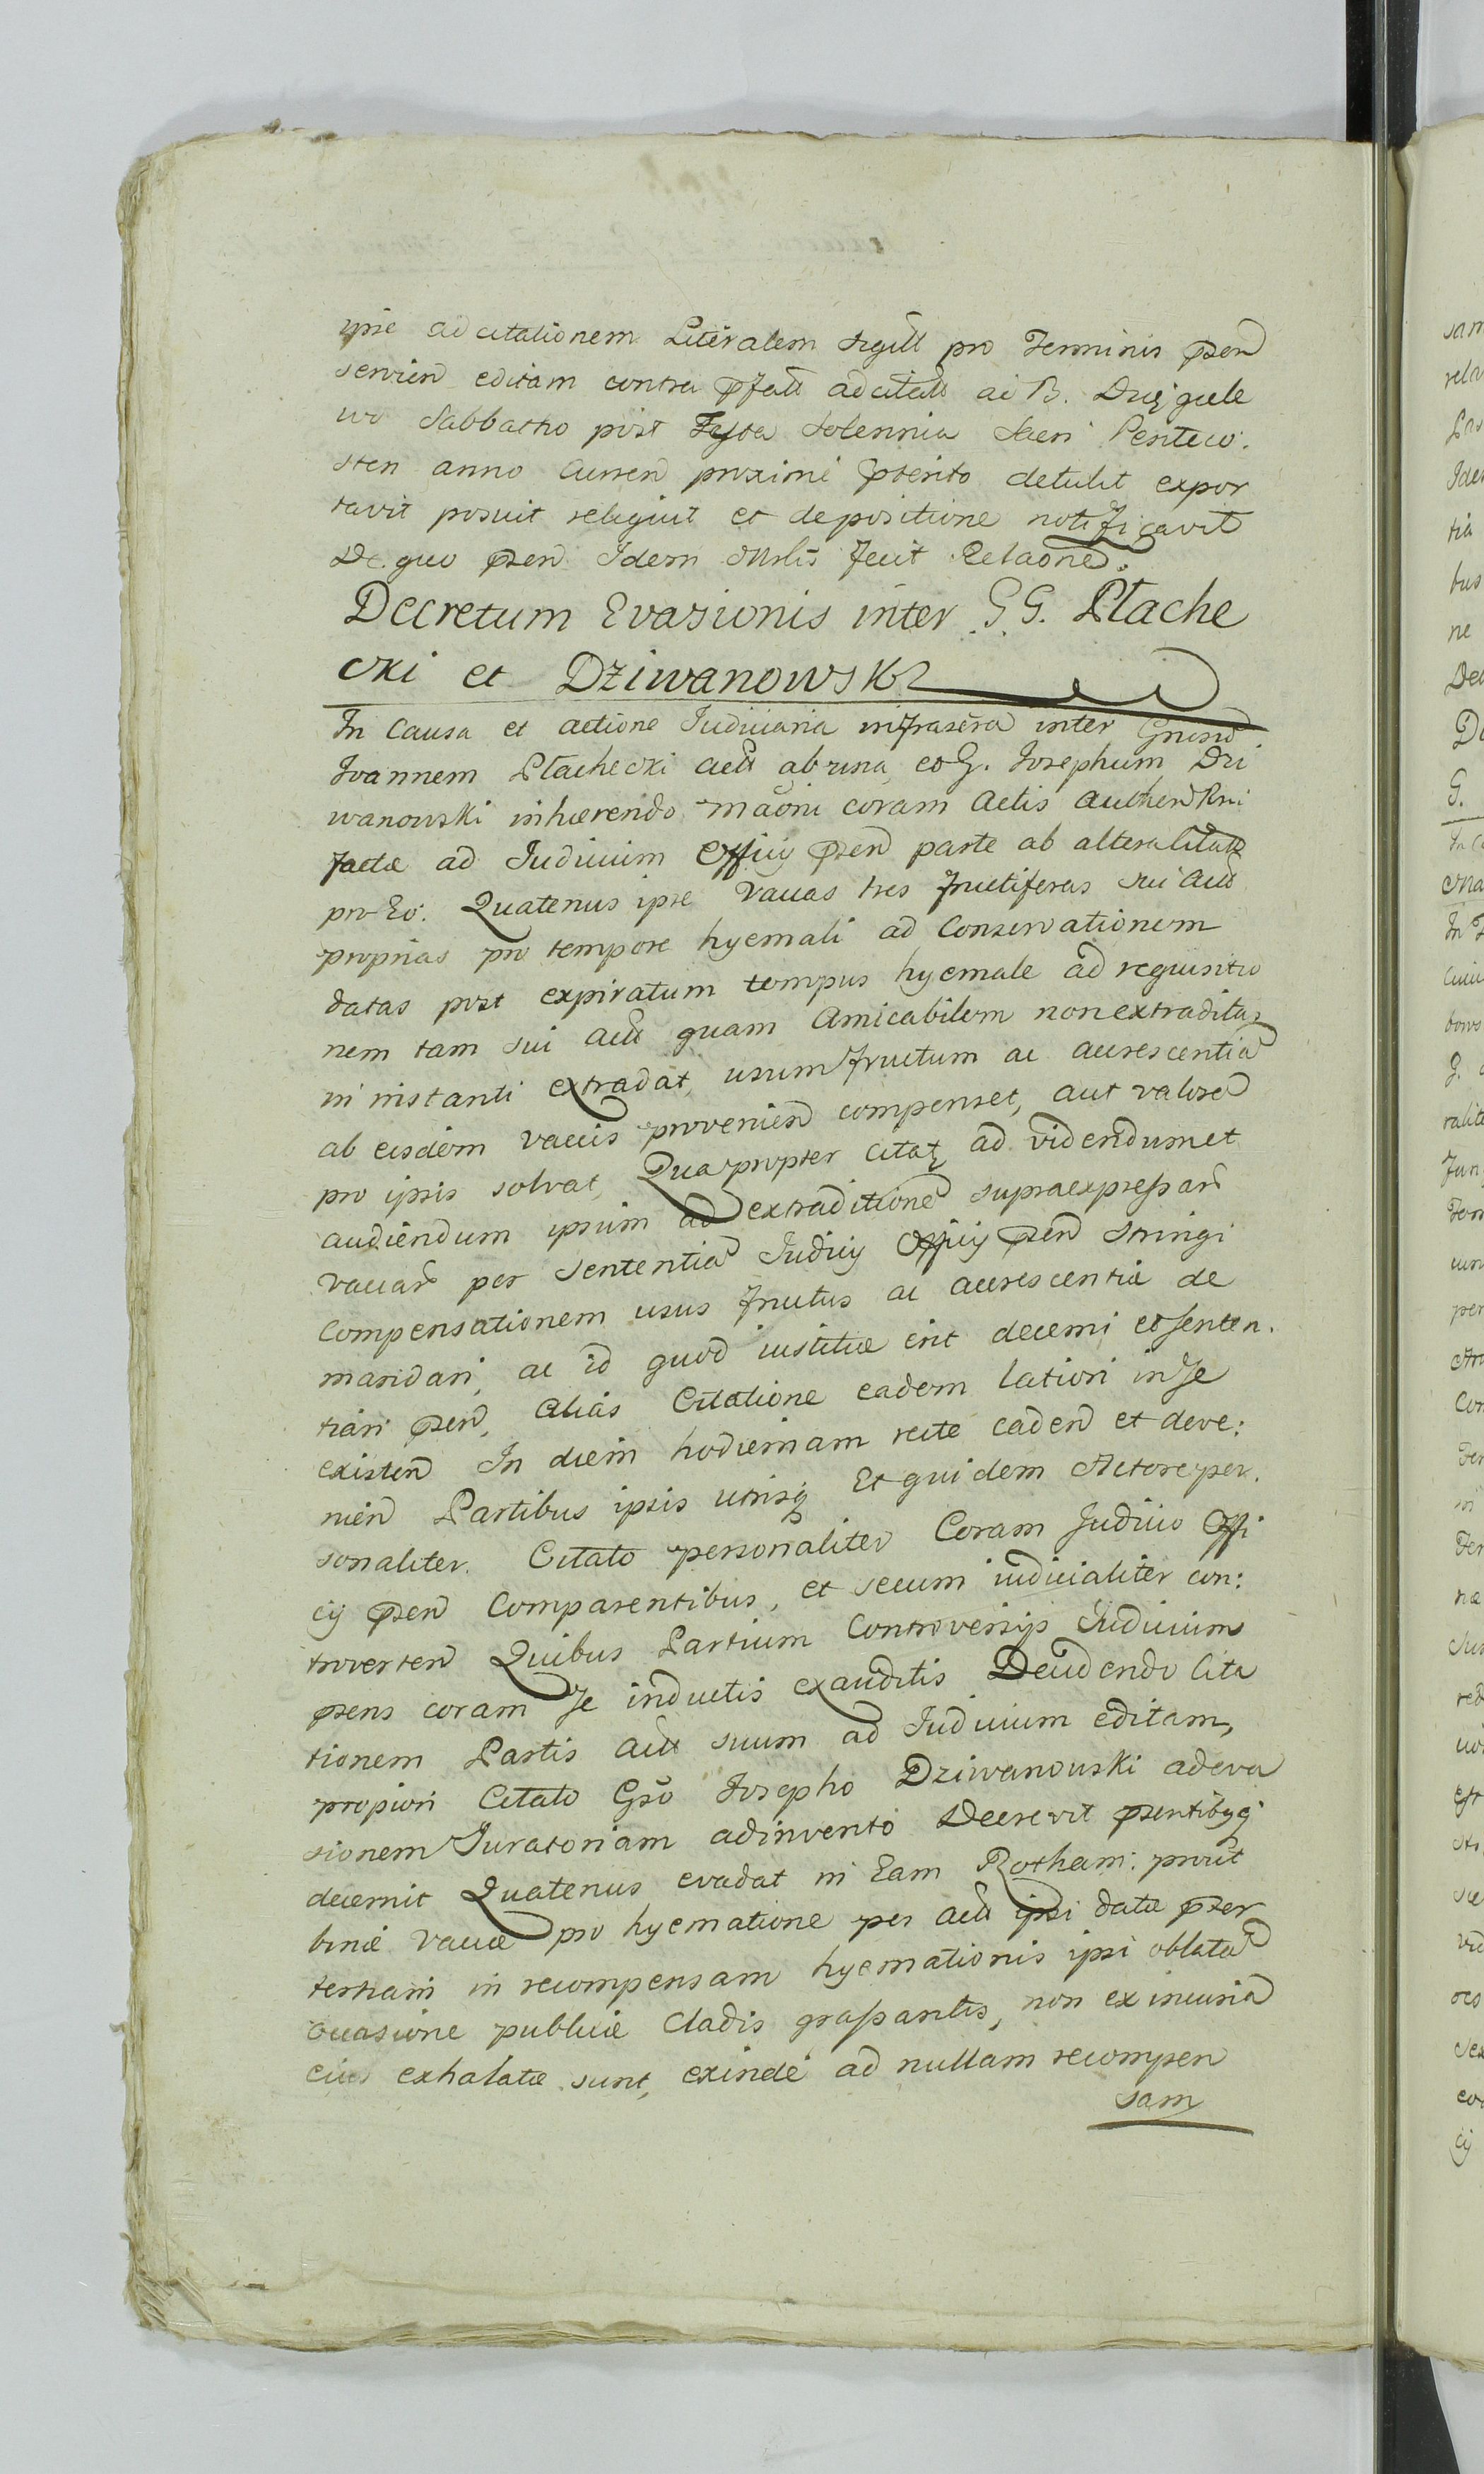 ipse ad citationem Literalem sigill pro Terminis pñsen
servien editam contra pfatt adcitatt ac B. Duigule
wo Sabbatho post Festa Solennia Sacri Penteco:
sten anno curren proxime pterito detulit expor
tavit posuit reliquit et depositione notificavit
De quo psen Idem Mnlis fecit Relaone.
Decretum Evasionis inter G.G. Płache
cki et Dziwanowski
In Causa et actione Judiciaria infrascra inter Gnosũ
Joannem Płachecki actt ab una, et G. Josephum Dzi
wanowski inhærendo maõni coram Actis authen Rni
factæ ad Judicium Officij psen parte ab altera litatt
pro Eo. Quatenus ipse vaccas tres fructiferas sui actt
proprias pro tempore hyemali ad Conservationem
datas post expiratum tempus hyemale ad requisitio
nem tam sui actt quam Amicabilem non extraditas
in instanti extradat, usumfructum ac accrescentia
ab eisdem vaccis provenien compenset, aut valore
pro ipsis solvat, Quapropter citat ad videndum et
audiendum ipsum ad extraditione supraexpressar
vaccar per sententia Judicij Officij psen stringi
compensationem usus fructus ac accrescentiæ de
mandari, ac id quod iustitiæ erit decerni et senten:
tiari psen, alias Citatione eadem latiori in se
existen In diem hodiernam recte caden et deve:
nien Partibus ipsis utrisq Et quidem Actore per:
sonaliter. Citato personaliter Coram Judicio Offi
cij psen Comparentibus, et secum iudicialiter con:
troverten Quibus Partium Controversijs Judicium
psens coram se inductis exauditis Decidendo Cita
tionem Partis actt suum ad Judicium editam,
propiori Citato Gso Josepho Dziwanowski ad eva
sionem Juratoriam adinvento Decrevit psentibusq
decernit Quatenus evadat in Eam Rotham: prout
binæ vaccæ pro hyematione per actt ipsi datæ pter
tertiam in recompensam hyemationis ipsi oblata
occasione publicæ Cladis grassantis, non ex incuria
eius exhalatæ sunt, exinde ad nullam recompen
sam